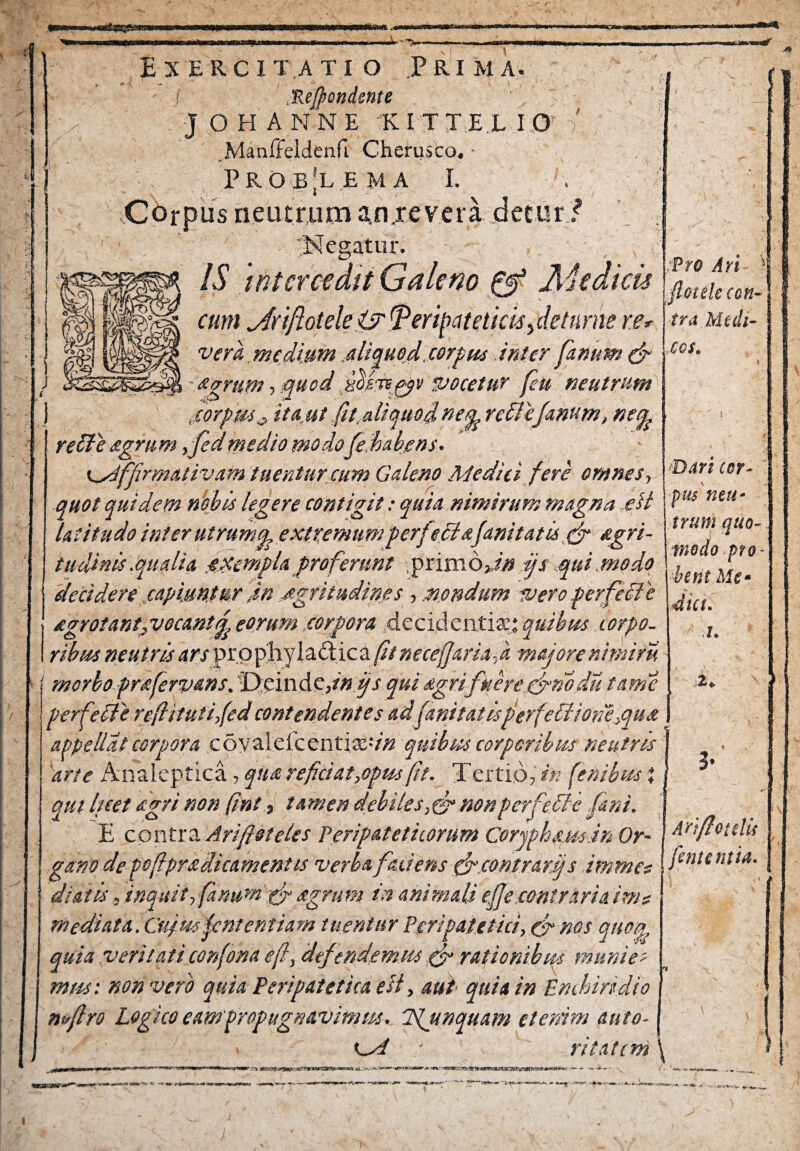 EXERCITATIO PRIMA.
Respondente
JOHANNE KITTELIO
Manſfeldenſi Cherusco.
PROBLEMA I.
Corpus neutrum an revera detur?
Negatur.
LIS intercedit Galeno & Medicis
cum Ariſtotele & Peripateticis, detur ne re-
verà medium aliquod corpus inter ſanum &
ægrum, quod ἐδέτερον vocetur ſeu neutrum
corpus, ita ut ſit aliquod neq; rectè ſanum, neq;
rectè ægrum, ſed medio modo ſe habens.
Affirmativam tuentur cum Galeno Medici ferè omnes,
quot quidem nobis legere contigit: quia nimirum magna eſt
latitudo inter utrumq; extremum perfectæ ſanitatis & ægri-
tudinis. qualia exempla proferunt primò, in ijs qui modo
decidere capiuntur in ægritudines, nondum vero perfectè
ægrotant, vocantq; eorum corpora decidentiæ; quibus corpo-
ribus neutris ars prophylactica ſit neceſſaria, à majore nimirū
morbo præſervans. Deinde, in ijs qui ægri fuêre & nō dū tamē
perfectè reſtituti, ſed contendentes ad ſanitatis perfectionē, quæ
appellāt corpora cōvaleſcentiæ: in quibus corporibus neutris
arte Analeptica, quæ reficiat, opus ſit. Tertiò, in ſenibus:
qui licet ægri non ſint, tamen debiles, & non perfectè ſani.
E contra Ariſtoteles Peripateticorum Coryphæus in Or-
gano de poſtprædicamentis verba faciens & contrarijs imme-
diatis, inquit, ſanum & ægrum in animali eſſe contraria im-
mediata. Cujus ſententiam tuentur Peripatetici, & nos quoq;
quia veritati conſona eſt, defendemus & rationibus munie-
mus: non verò quia Peripatetica eſt, aut quia in Enchiridio
noſtro Logico eam propugnavimus. Nunquam etenim auto-
A
ritatem
Pro Ari-
ſtotele con-
tra Medi-
cos.
Dari cor-
pus neu-
trum quo-
modo pro-
bent Me-
dici.
1.
2.
3.
Ariſtotelis
ſententia.